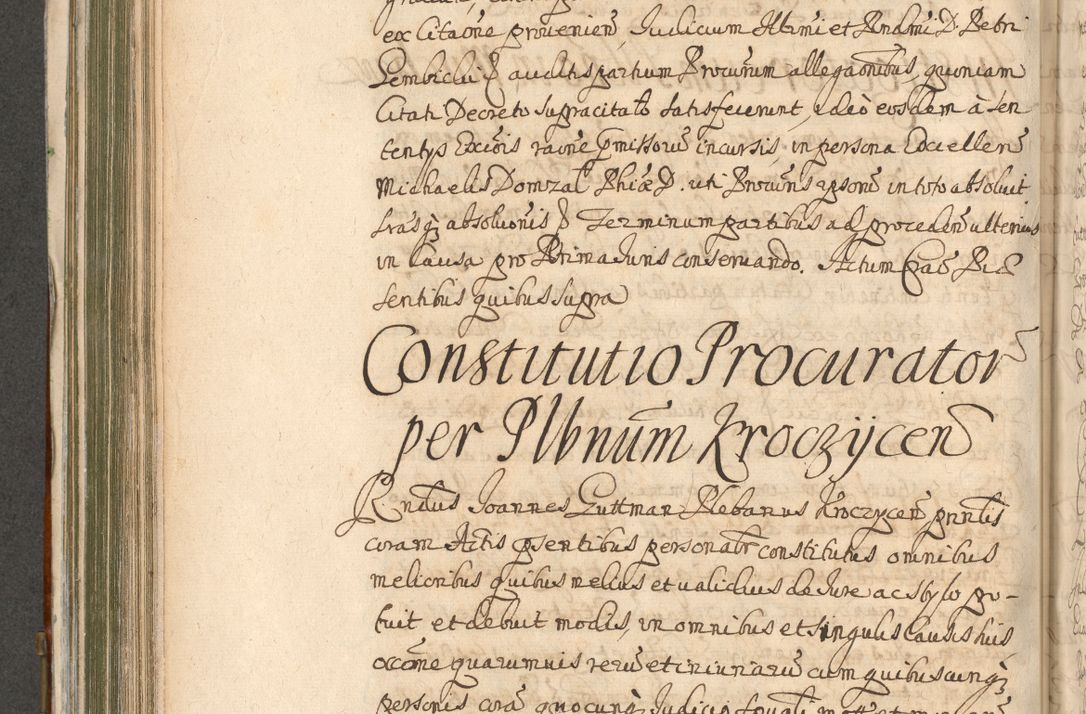 ex Citaõne provenien, Judicium Illmi et Rndmi D. Petri
Gembicki &c auditis partium Procurum allegaonibus, quoniam
Citati Decreto supracitato satisfecerunt, ideo eosdem à sen
tentys Excõis raõne p̃missorũ incursis, in persona Excellen
Michaelis Domzal Phiæ D. uti Procuris ipsorũ in toto absoluit
lras&#113;ʒ absoluõnis &c Terminum partibus ad proceden ulterius
in Causa pro Prima Juris conservando. Actum Crac Præ
sentibus quibus supra
Constitutio Procurator
per Plbnum Kroczycen
Rndus Joannes Guttman Plebanus Kroczycen pntis
coram Actis psentibus personalr constitutus omnibus
melioribus quibus melius et validius de Jure ac stylo po-
tuit et debuit modis, in omnibus et singulis Causis suis
occõne quarumvis rerũ et iniuriarũ cum quibuscunqʒ
personis corã quocunqʒ Judicio